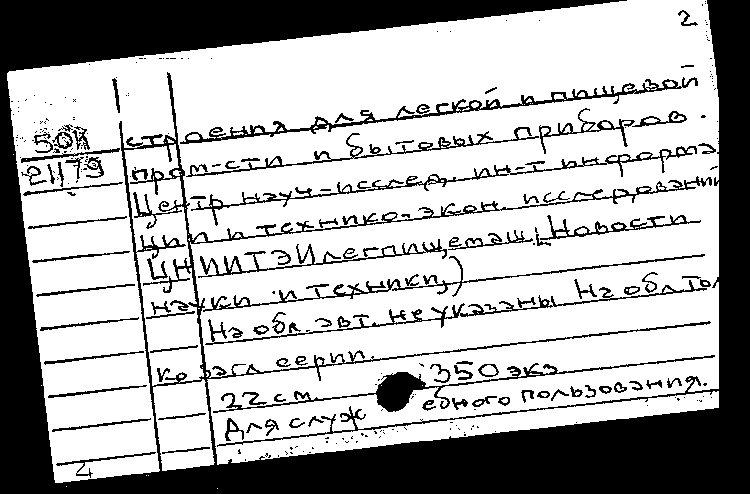 2
строения для легкой и пищевой
50К
пром-сти и бытовых приборов.
21179
Центр науч-исслед. ин-т информа
ции и технико-экон. исследований
ЦНИИТЭИлегпищемаш; Новости
науки и техники,)
На обл. авт. не указаны На обл. толь
ко загл серии.
22 см. 350 экз
Для служебного пользования.
4